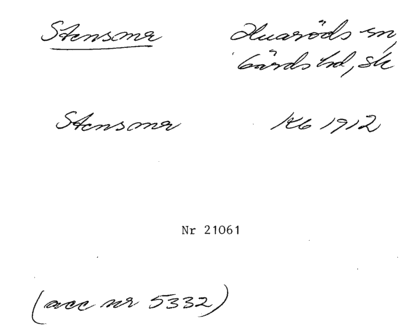 Stensma Huaröds sn,
Gärds hd, Sk
Stensma KG 1912
Nr 21061
(acc nr 5332)